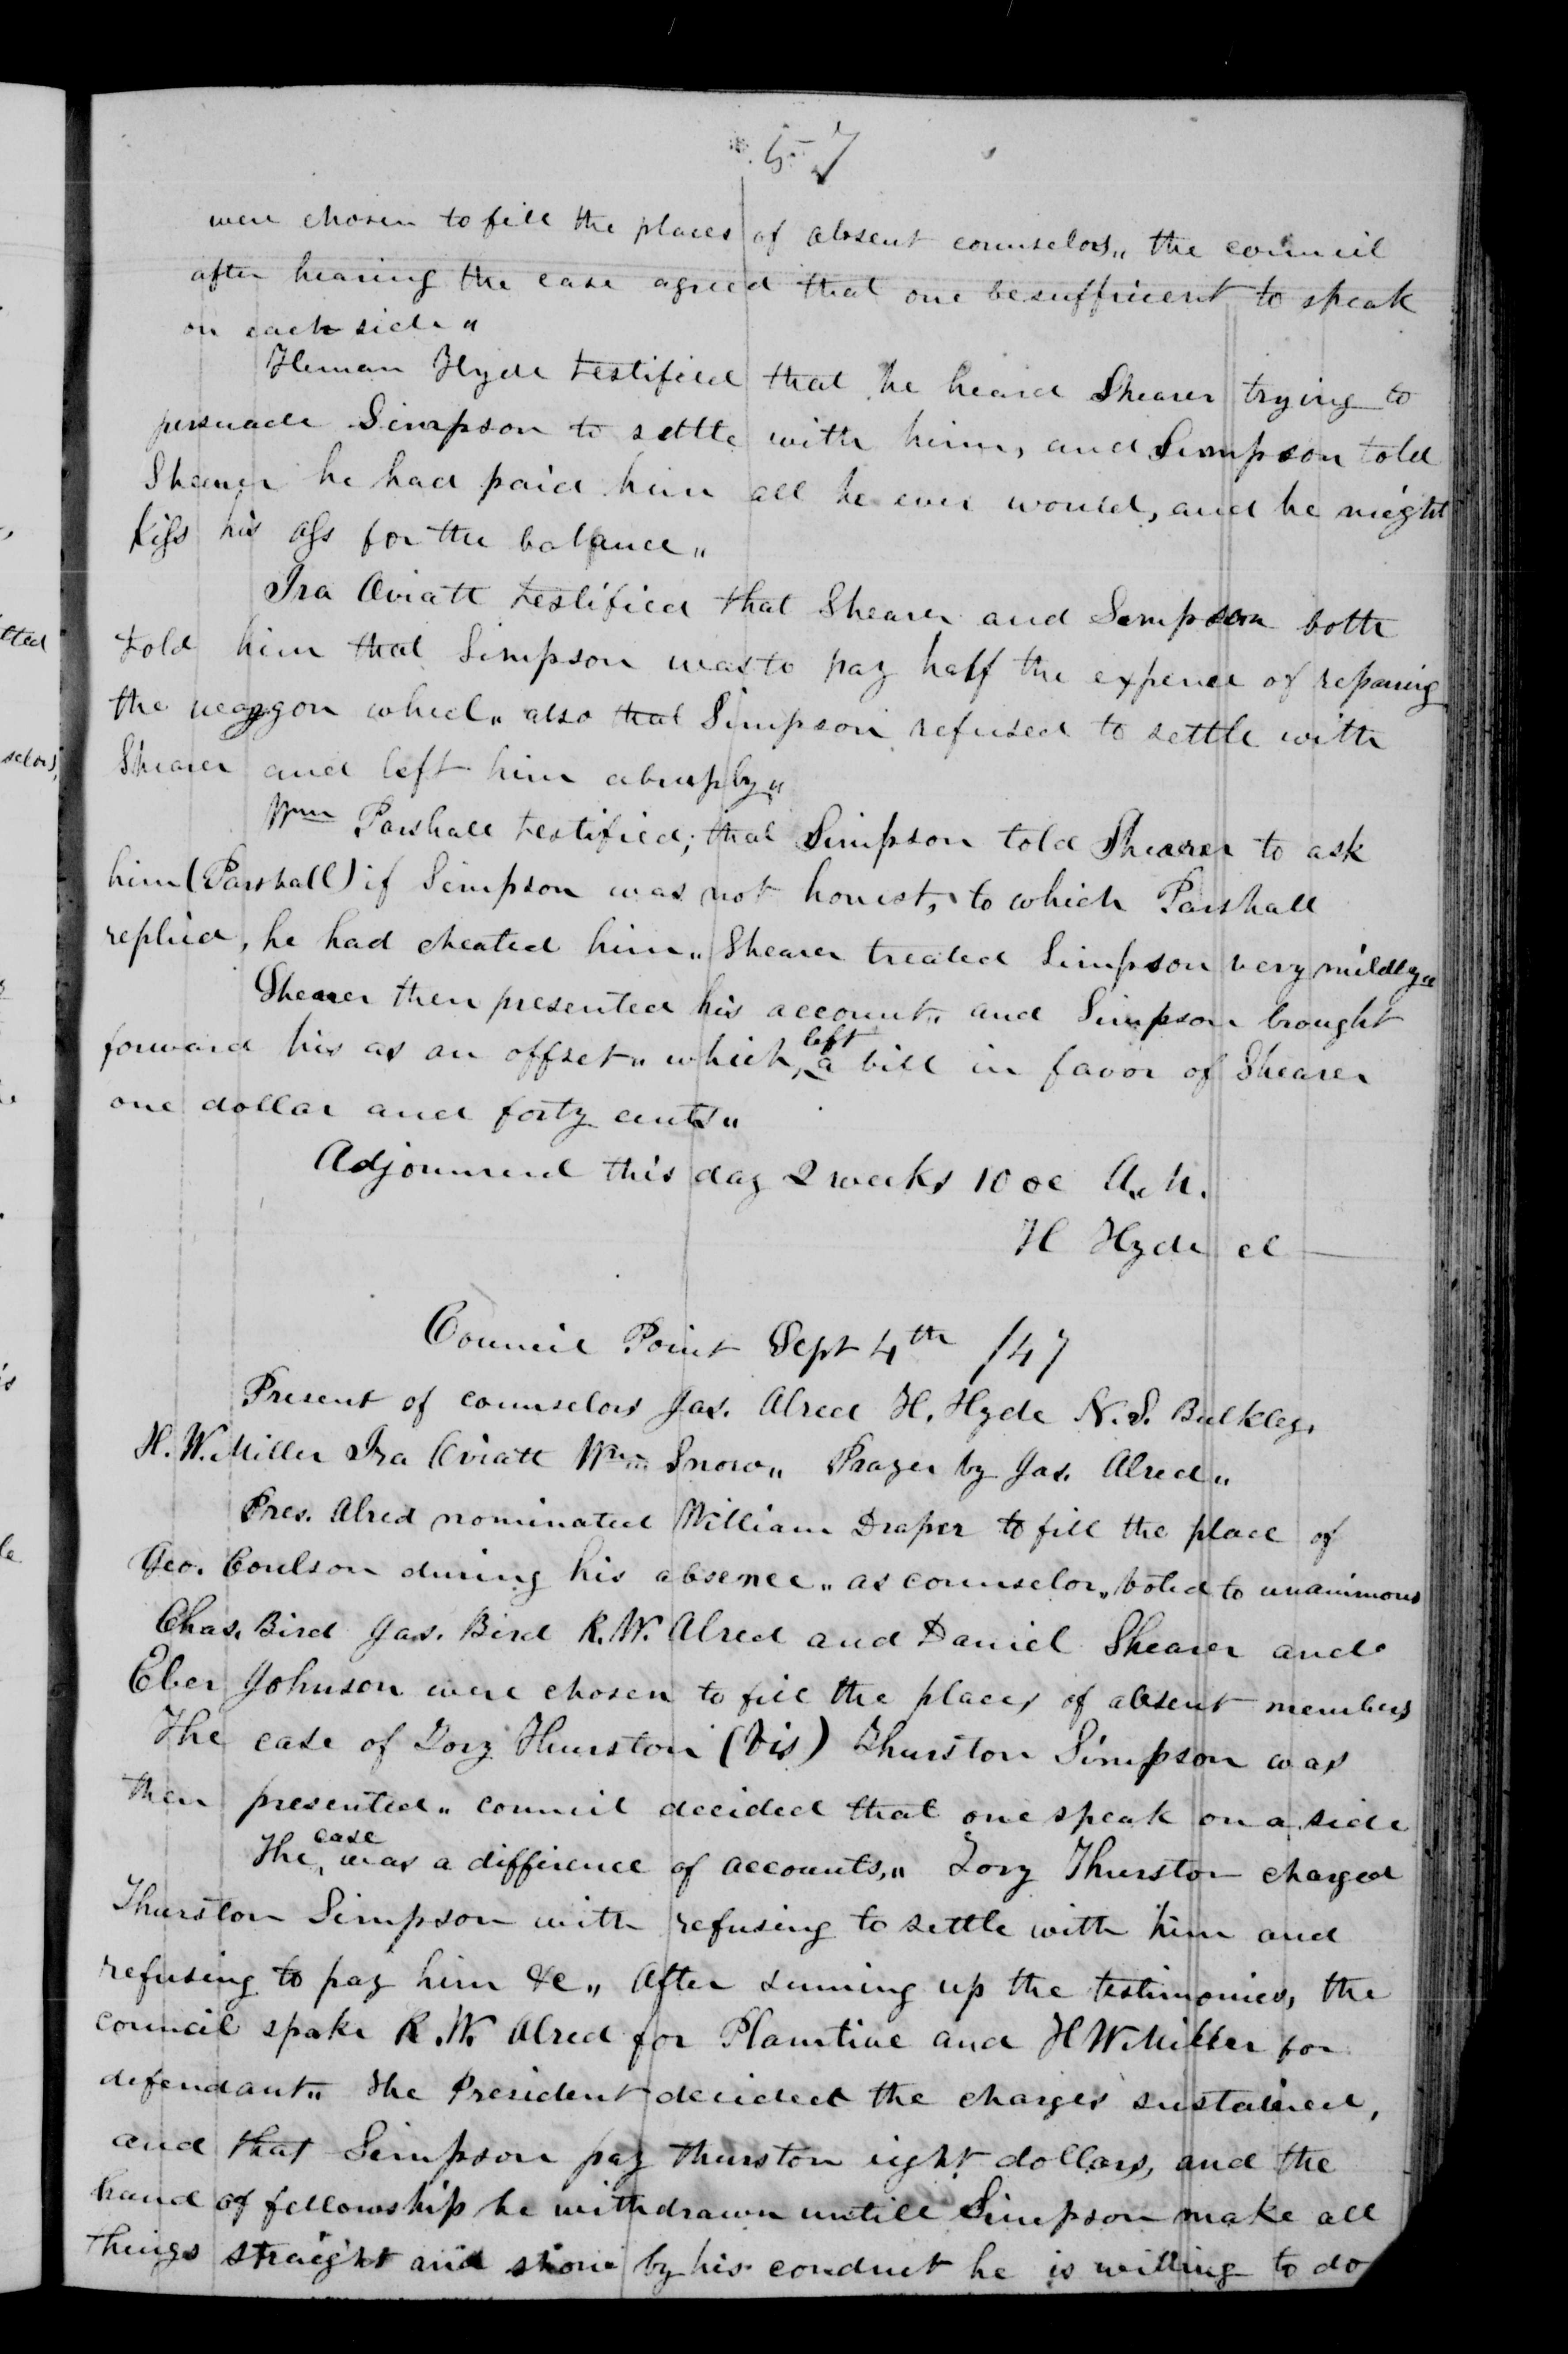 57
were chosen to fill the places of absent counselors,, the council
after hearing the case agreed that one be sufficent to speak
on each side,,
Heman Hyde testified that he heard Shearer trying to
persuade Simpson to settle with him, and Simpson told
Shearer he had paid him all he ever would, and he might
kiss his ass for the balance,,
Ira Oviatt testified that Shearer and Simpson both
told him that Simpson was to pay half the expence of reparing
the waggon wheel,, also that Simpson refused to settle with
Shearer and left him abruply,,
Wm Parshall testified; that Simpson told Shearer to ask
him (Parshall) if Simpson was not honest, to which Parshall
replied, he had cheated him,, Shearer treated Simpson very mildly,,
Shearer then presented his account,, and Simpson brought
forward his as an offset,, which left a bill in favor of Shearer
one dollar and forty cents,,
Adjournend this day 2 weeks 10 oc A.M.
H Hyde cl
Council Point Sept 4th /47
Present of counselors Jas. Alred H. Hyde N.S. Bulkley,
H.W. Miller Ira Oviatt Wm Snow,, Prayer by Jas. Alred,,
Pres. Alred nominated William Draper to fill the place of
Geo. Coulson during his absence,, as counselor,, voted to unanimous
Chas. Bird Jas. Bird R.W. Alred and Daniel Shearer and
Eber Johnson were chosen to fill the places of absent members
The case of Dory Thurston (vis) Thurston Simpson was
then presented,, council decided that one speak on a side
The case was a difference of accounts,,, Tory Thurston charged
Thurston Simpson with refusing to settle with him and
refusing to pay him &c,, After suming up the testimonies, the
council spoke R.W. Alred for Plaintive and H W Miller for
defendant,, The President decided the charges sustained,
and that Simpson pay Thurston eight dollars, and the
hand of fellowship be withdrawn untill Simpson make all
things straight and show by his conduct he is willing to do
tted
selors,